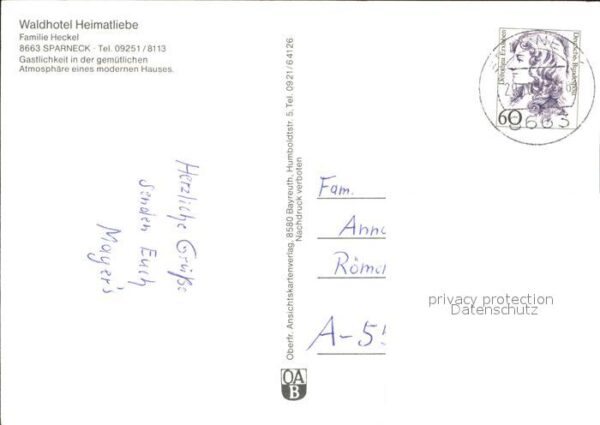 Waldhotel Heimatliebe
Familie Heckel
8663 SPARNECK · Tel. 09251/8113
Gastlichkeit in der gemütlichen
Atmosphäre eines modernen Hauses.
Herzliche Grüße
senden Euch
Mayer's
Oberfr. Ansichtskartenverlag, 8580 Bayreuth, Humboldtstr. 5, Tel. 0921/64126
Nachdruck verboten
OA
B
Deutsche Bundespost
60
8663
Fam.
Anna
Römer
A-55
privacy protection
Datenschutz